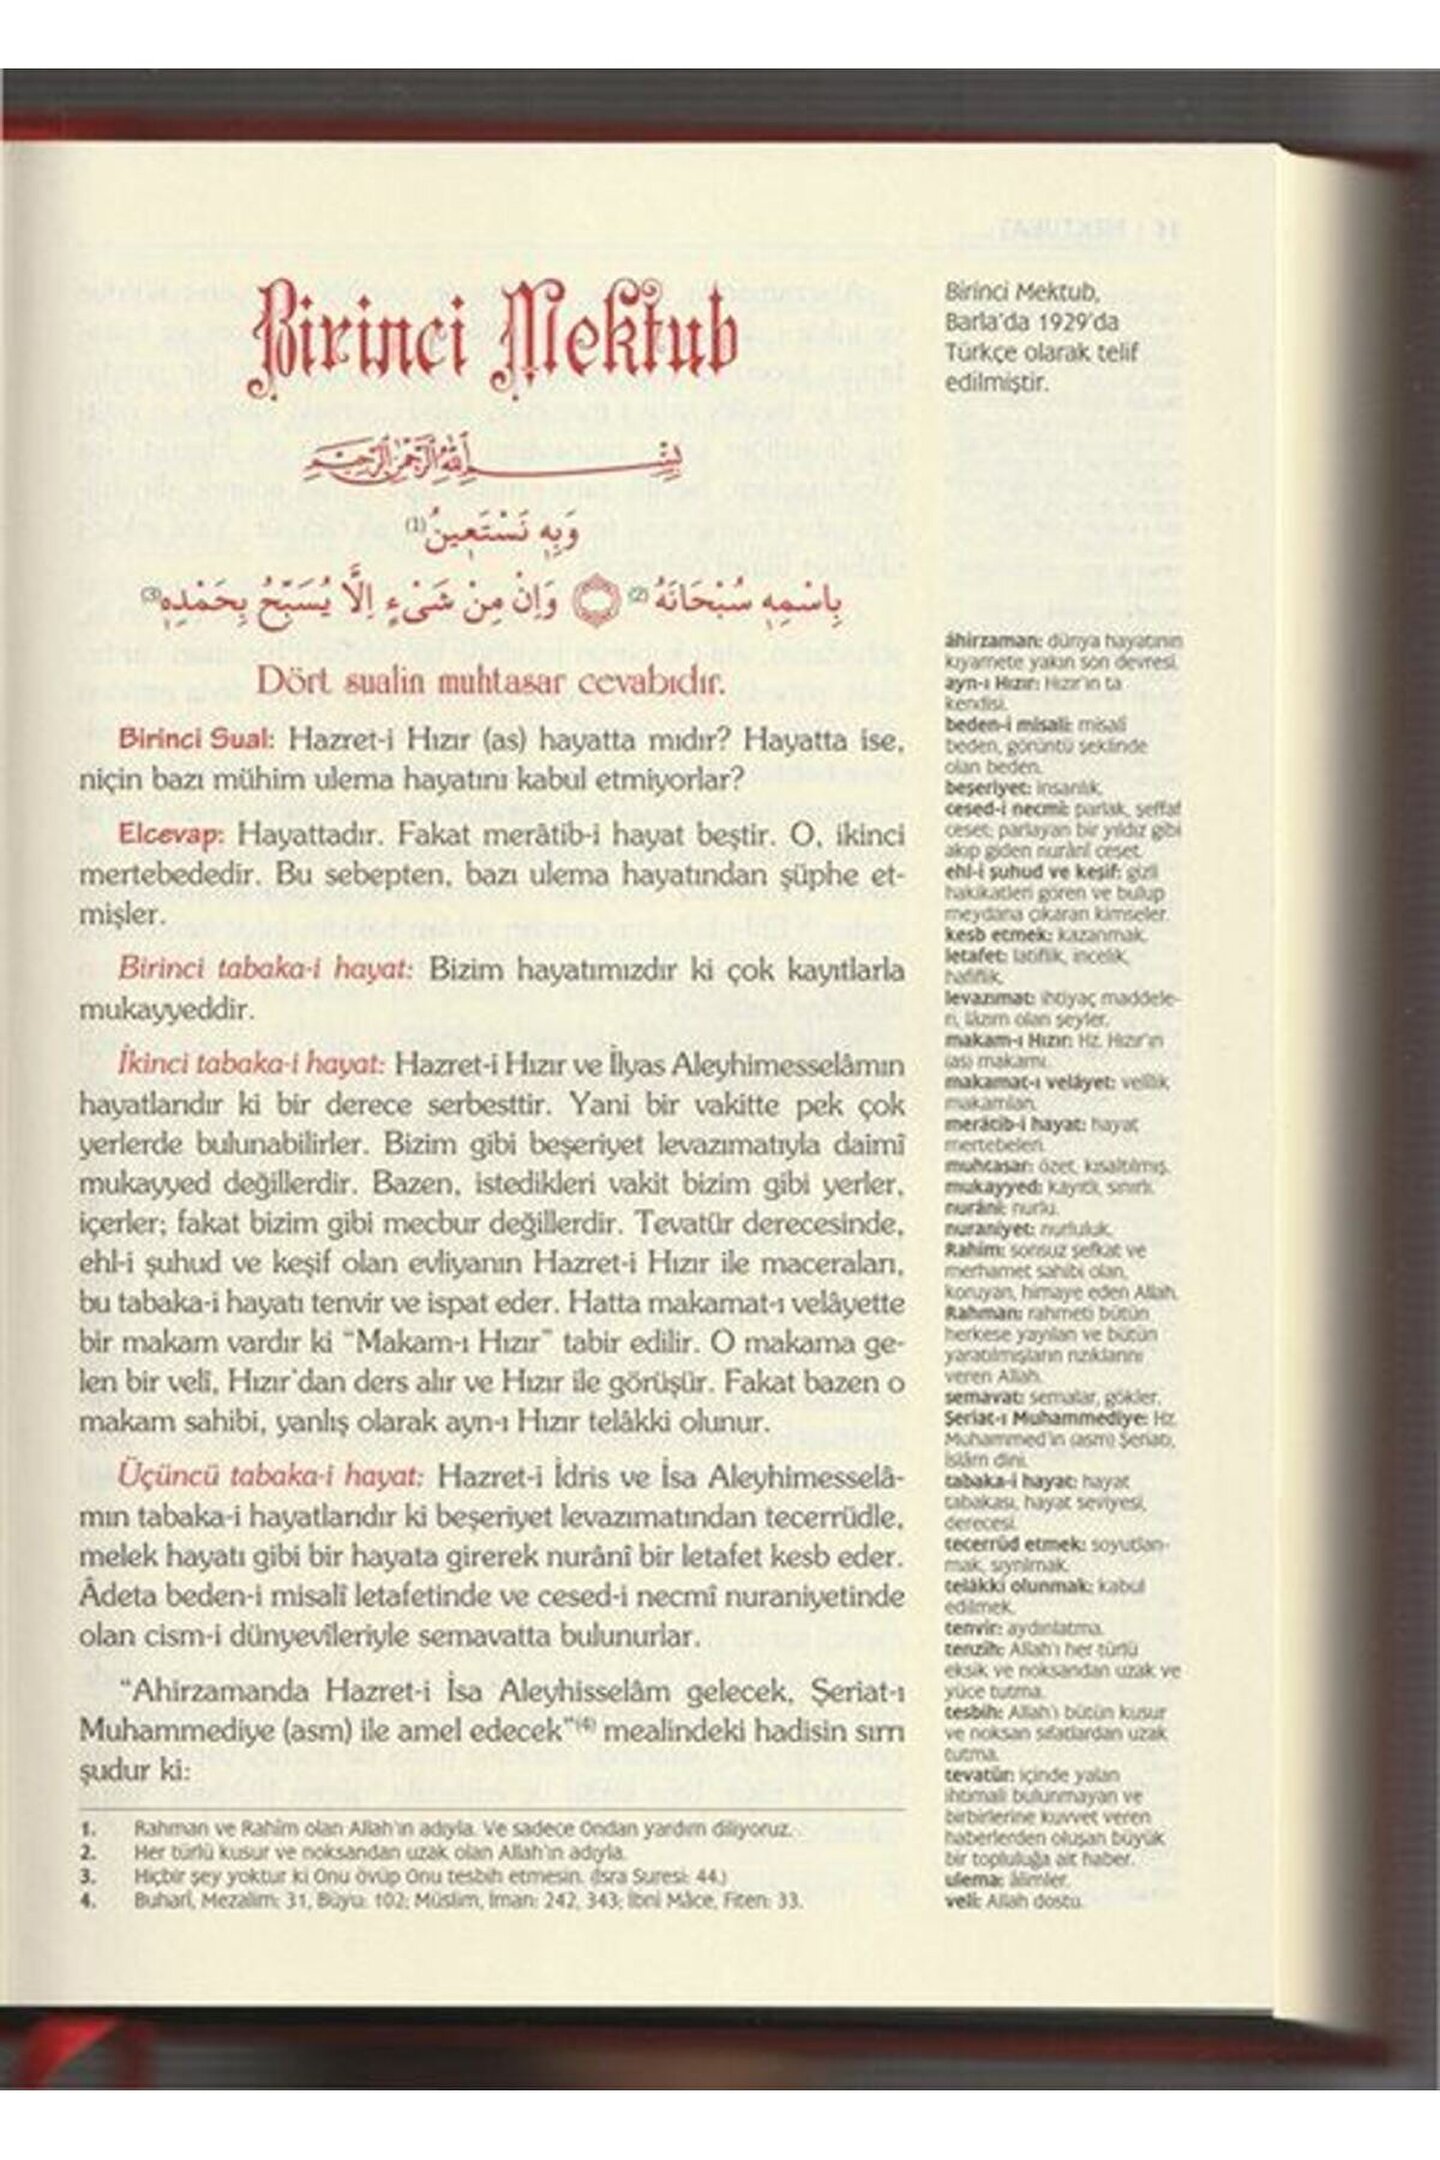 Birinci Mektub
بِسْمِ اللهِ الرَّحْمٰنِ الرَّحِيمِ
وَبِهٖ نَسْتَعٖينُ (1)
بِاسْمِهٖ سُبْحَانَهُ (2) وَاِنْ مِنْ شَىْءٍ اِلَّا يُسَبِّحُ بِحَمْدِهٖ (3)
Dört sualin muhtasar cevabıdır.
Birinci Sual: Hazret-i Hızır (as) hayatta mıdır? Hayatta ise,
niçin bazı mühim ulema hayatını kabul etmiyorlar?
Elcevap: Hayattadır. Fakat merâtib-i hayat beştir. O, ikinci
mertebededir. Bu sebepten, bazı ulema hayatından şüphe et-
mişler.
Birinci tabaka-i hayat: Bizim hayatımızdır ki çok kayıtlarla
mukayyeddir.
İkinci tabaka-i hayat: Hazret-i Hızır ve İlyas Aleyhimesselâmın
hayatlarıdır ki bir derece serbesttir. Yani bir vakitte pek çok
yerlerde bulunabilirler. Bizim gibi beşeriyet levazımatıyla daimî
mukayyed değillerdir. Bazen, istedikleri vakit bizim gibi yerler,
içerler; fakat bizim gibi mecbur değillerdir. Tevatür derecesinde,
ehl-i şuhud ve keşif olan evliyanın Hazret-i Hızır ile maceraları,
bu tabaka-i hayatı tenvir ve ispat eder. Hatta makamat-ı velâyette
bir makam vardır ki “Makam-ı Hızır” tabir edilir. O makama ge-
len bir velî, Hızır'dan ders alır ve Hızır ile görüşür. Fakat bazen o
makam sahibi, yanlış olarak ayn-ı Hızır telâkki olunur.
Üçüncü tabaka-i hayat: Hazret-i İdris ve İsa Aleyhimesselâ-
mın tabaka-i hayatlarıdır ki beşeriyet levazımatından tecerrüdle,
melek hayatı gibi bir hayata girerek nurânî bir letafet kesb eder.
Âdeta beden-i misalî letafetinde ve cesed-i necmî nuraniyetinde
olan cism-i dünyevîleriyle semavatta bulunurlar.
“Ahirzamanda Hazret-i İsa Aleyhisselâm gelecek, Şeriat-ı
Muhammediye (asm) ile amel edecek”(4) mealindeki hadisin sırrı
şudur ki:
1. Rahman ve Rahîm olan Allah'ın adıyla. Ve sadece Ondan yardım diliyoruz.
2. Her türlü kusur ve noksandan uzak olan Allah'ın adıyla.
3. Hiçbir şey yoktur ki Onu övüp Onu tesbih etmesin. (İsra Suresi: 44.)
4. Buharî, Mezalim: 31, Büyu: 102; Müslim, İman: 242, 343; İbni Mâce, Fiten: 33.
Birinci Mektub,
Barla'da 1929'da
Türkçe olarak telif
edilmiştir.
âhirzaman: dünya hayatının
kıyamete yakın son devresi.
ayn-ı Hızır: Hızır'ın ta
kendisi.
beden-i misalî: misalî
beden, görüntü şeklinde
olan beden.
beşeriyet: insanlık.
cesed-i necmî: parlak, şeffaf
ceset; parlayan bir yıldız gibi
akıp giden nurânî ceset.
ehl-i şuhud ve keşif: gizli
hakikatleri gören ve bulup
meydana çıkaran kimseler.
kesb etmek: kazanmak.
letafet: latiflik, incelik,
hafiflik.
levazımat: ihtiyaç maddele-
ri, lâzım olan şeyler.
makam-ı Hızır: Hz. Hızır'ın
(as) makamı.
makamat-ı velâyet: velîlik
makamları.
merâtib-i hayat: hayat
mertebeleri.
muhtasar: özet, kısaltılmış.
mukayyed: kayıtlı, sınırlı.
nurânî: nurlu.
nuraniyet: nurluluk.
Rahîm: sonsuz şefkat ve
merhamet sahibi olan,
koruyan, himaye eden Allah.
Rahman: rahmeti bütün
herkese yayılan ve bütün
yaratılmışların rızıklarını
veren Allah.
semavat: semalar, gökler.
Şeriat-ı Muhammediye: Hz.
Muhammed'in (asm) Şeriatı,
İslâm dini.
tabaka-i hayat: hayat
tabakası, hayat seviyesi,
derecesi.
tecerrüd etmek: soyutlan-
mak, sıyrılmak.
telâkki olunmak: kabul
edilmek.
tenvir: aydınlatma.
tenzih: Allah'ı her türlü
eksik ve noksandan uzak ve
yüce tutma.
tesbih: Allah'ı bütün kusur
ve noksan sıfatlardan uzak
tutma.
tevatür: içinde yalan
ihtimali bulunmayan ve
birbirlerine kuvvet veren
haberlerden oluşan büyük
bir topluluğa ait haber.
ulema: âlimler.
velî: Allah dostu.